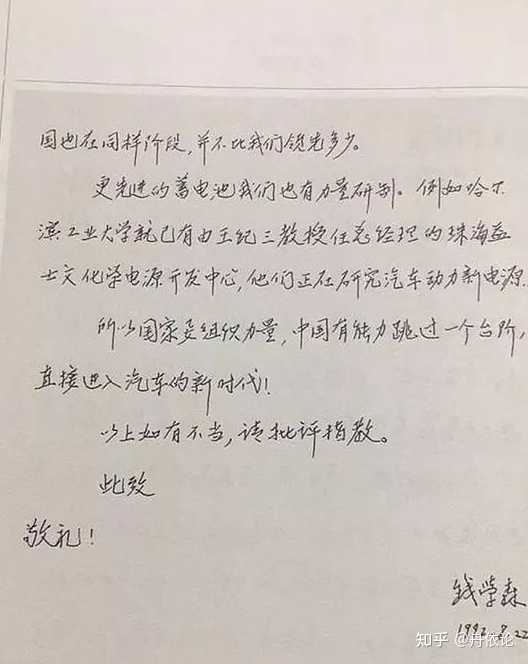 国也在同样阶段，并不比我们领先多少。
更先进的蓄电池我们也有力量研制。例如哈尔
滨工业大学就已有由王纪三教授任总经理的珠海益
士文化学电源开发中心，他们正在研究汽车动力新电源。
所以国家要组织力量，中国有能力跳过一个台阶，
直接进入汽车的新时代！
以上如有不当，请批评指教。
此致
敬礼！
钱学森
1992.8.22
知乎 @丹依论